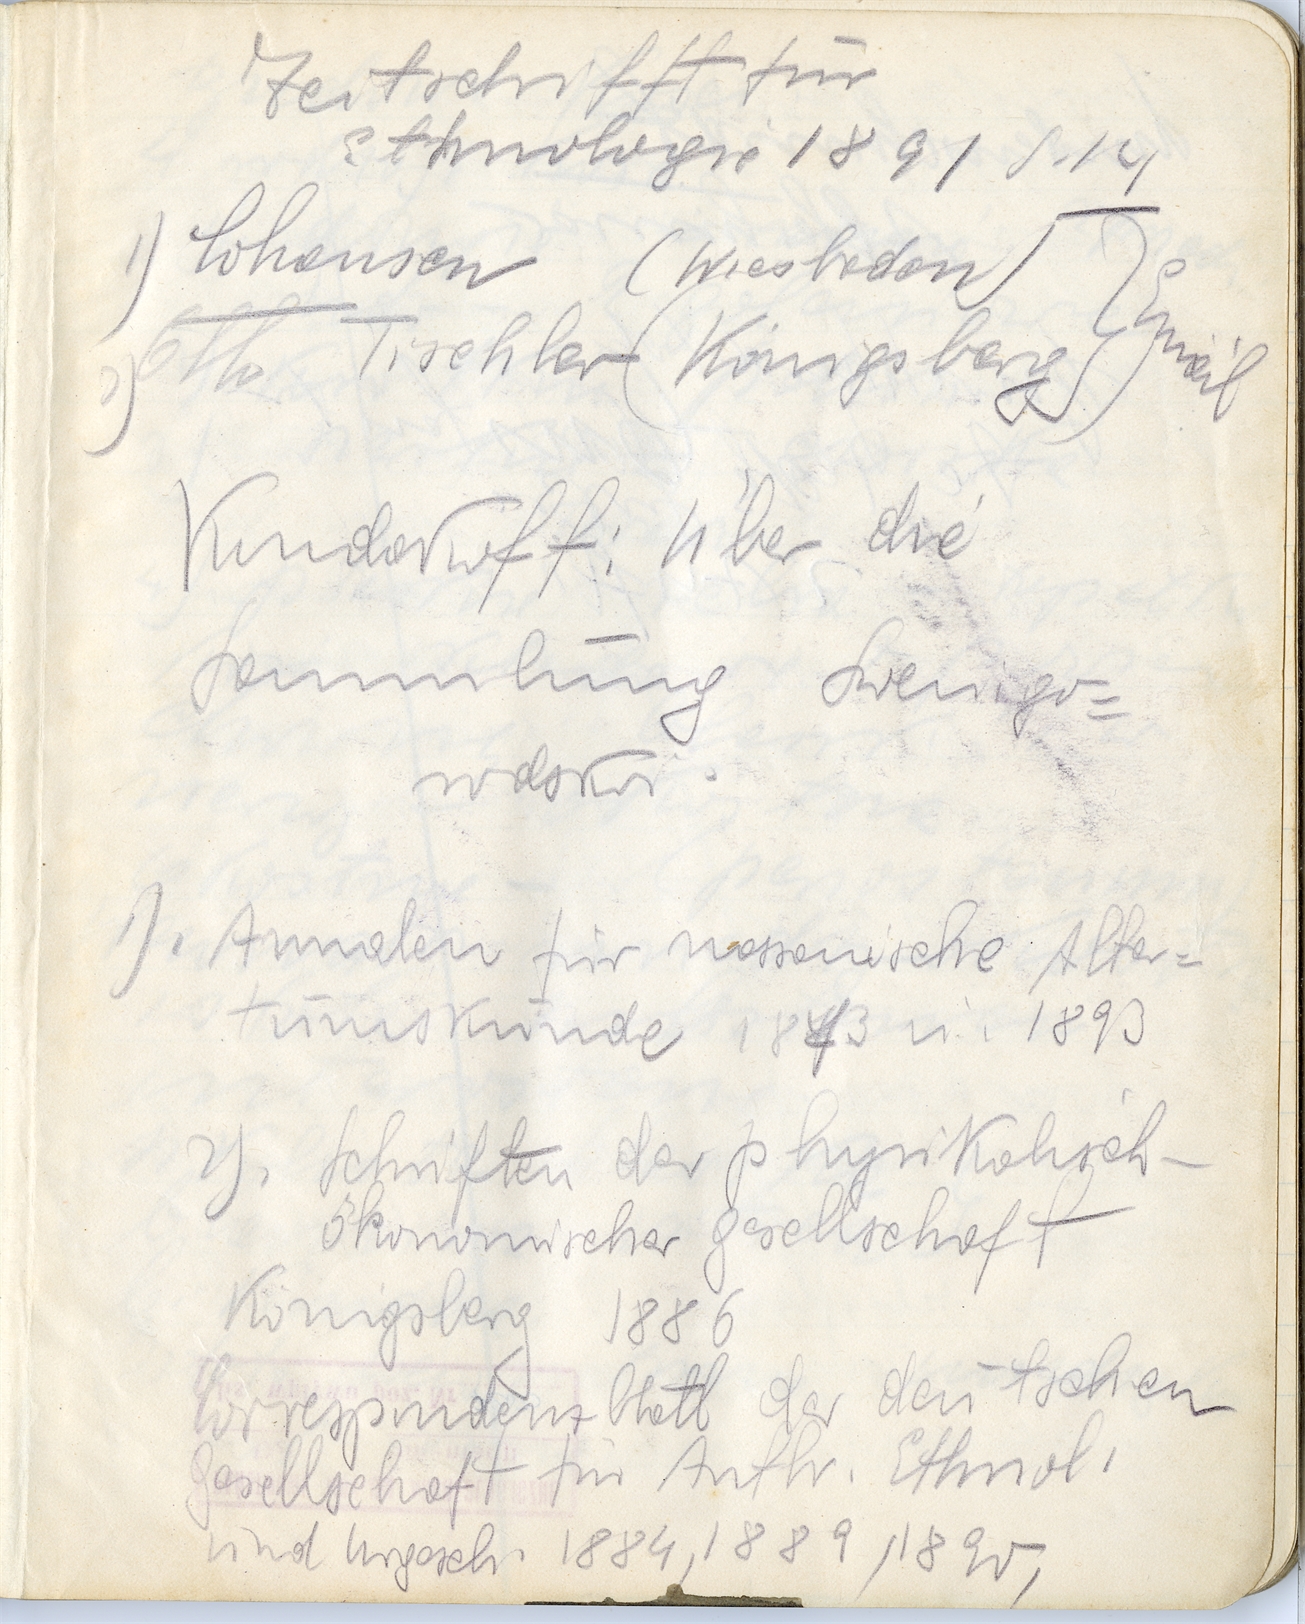 Zeitschrifft für
Ethnologie 1891 S. 14
1) Cohausen (Wiesbaden)
2) Otto Tischler (Königsberg) } Email
Kondakoff: Über die
Sammlung Swenigo=
rodskoi.
1). Annalen für nassauische Alter=
tumskunde 1873 u. 1893
2). Schriften der physikalisch-
ökonomischer Gesellschaft
Königsberg 1886
Correspondenzblatt der deutschen
Gesellschaft für Anthr. Ethnol.
und Urgesch. 1884, 1889, 1890,